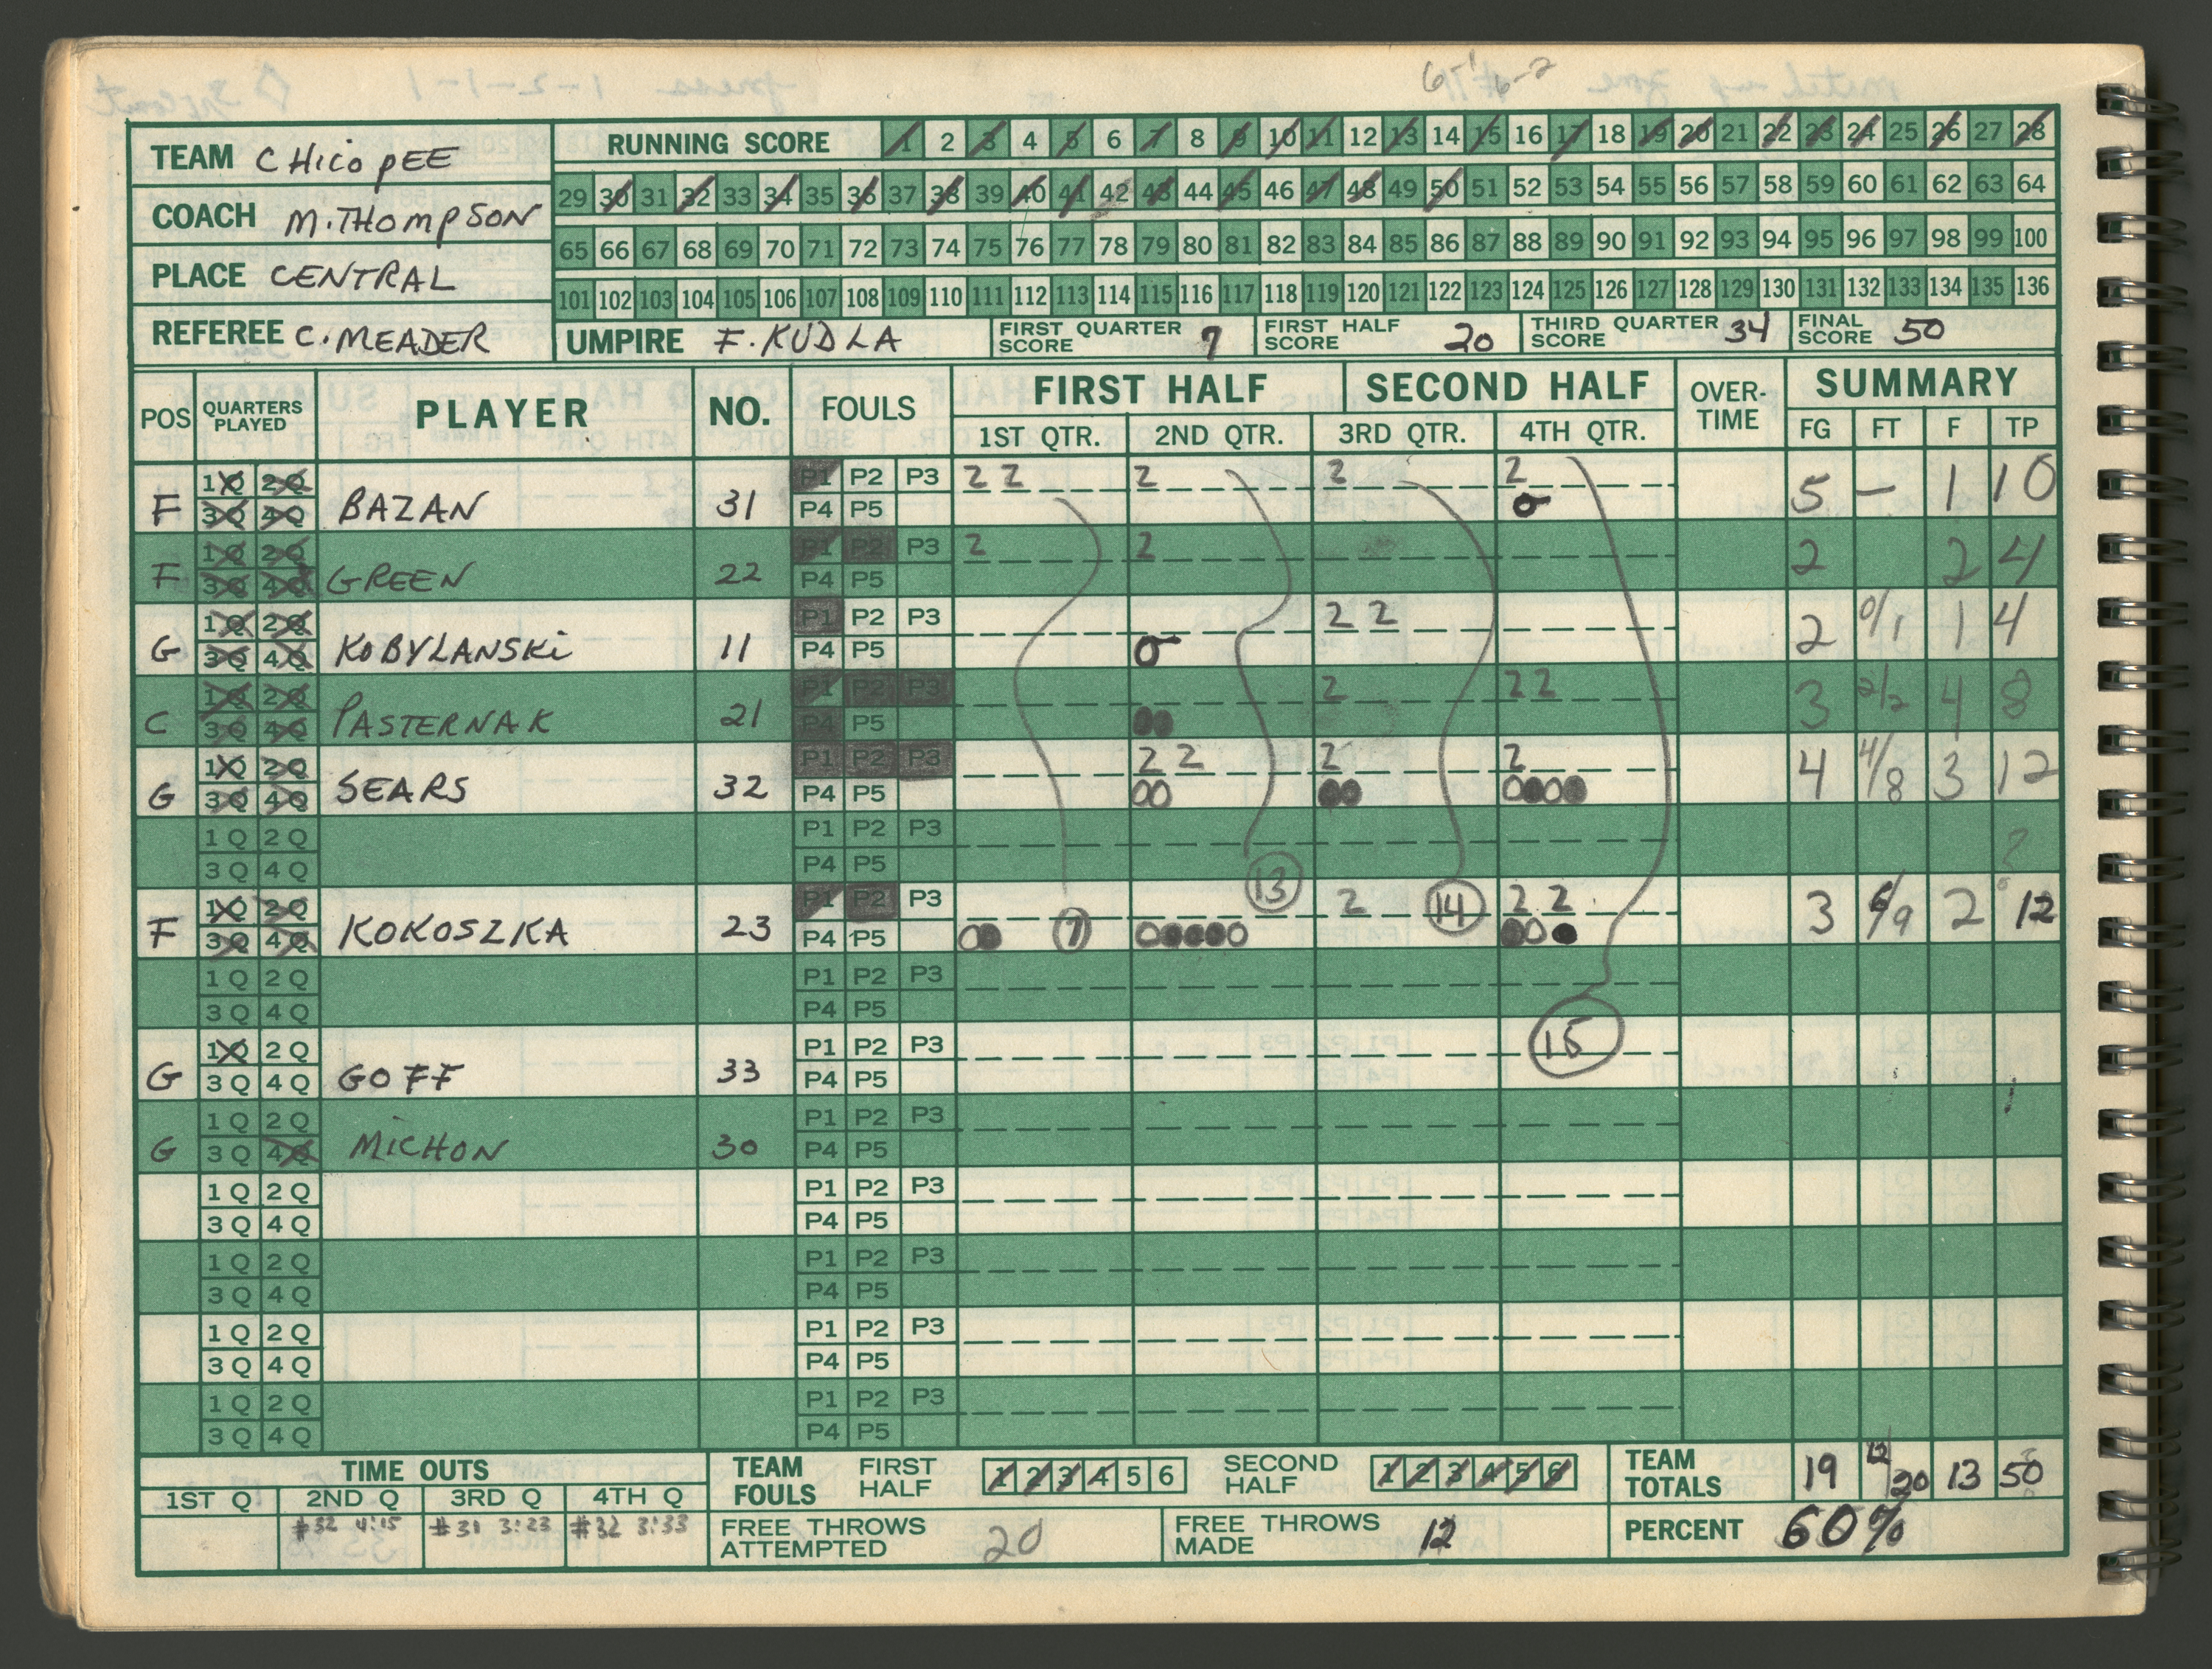 6'1 6-2
TEAM CHicopEE
COACH M.THOMPSON
PLACE CENTRAL
REFEREE C. MEADER
RUNNING SCORE 1 2 3 4 5 6 7 8 9 10 11 12 13 14 15 16 17 18 19 20 21 22 23 24 25 26 27 28
29 30 31 32 33 34 35 36 37 38 39 40 41 42 43 44 45 46 47 48 49 50 51 52 53 54 55 56 57 58 59 60 61 62 63 64
65 66 67 68 69 70 71 72 73 74 75 76 77 78 79 80 81 82 83 84 85 86 87 88 89 90 91 92 93 94 95 96 97 98 99 100
101 102 103 104 105 106 107 108 109 110 111 112 113 114 115 116 117 118 119 120 121 122 123 124 125 126 127 128 129 130 131 132 133 134 135 136
UMPIRE F. KUDLA FIRST QUARTER SCORE 7 FIRST HALF SCORE 20 THIRD QUARTER SCORE 34 FINAL SCORE 50
POS QUARTERS PLAYED PLAYER NO. FOULS FIRST HALF SECOND HALF OVER-TIME SUMMARY
1ST QTR. 2ND QTR. 3RD QTR. 4TH QTR. FG FT F TP
F 1Q 2Q 3Q 4Q BAZAN 31 P1 P2 P3 P4 P5 2 2 2 2 2 5 — 1 10
F 1Q 2Q 3Q 4Q GREEN 22 P1 P2 P3 P4 P5 2 2 2 2 4
G 1Q 2Q 3Q 4Q KOBYLANSKi 11 P1 P2 P3 P4 P5 2 2 2 0/1 1 4
C 1Q 2Q 3Q 4Q PASTERNAK 21 P1 P2 P3 P4 P5 2 2 2 3 2/2 4 8
G 1Q 2Q 3Q 4Q SEARS 32 P1 P2 P3 P4 P5 2 2 2 2 4 4/8 3 12
1Q 2Q 3Q 4Q P1 P2 P3 P4 P5
F 1Q 2Q 3Q 4Q KOKOSZKA 23 P1 P2 P3 P4 P5 7 13 2 14 2 2 3 6/9 2 12
1Q 2Q 3Q 4Q P1 P2 P3 P4 P5
G 1Q 2Q 3Q 4Q GOFF 33 P1 P2 P3 P4 P5
G 1Q 2Q 3Q 4Q MiCHON 30 P1 P2 P3 P4 P5
1Q 2Q 3Q 4Q P1 P2 P3 P4 P5
1Q 2Q 3Q 4Q P1 P2 P3 P4 P5
1Q 2Q 3Q 4Q P1 P2 P3 P4 P5
1Q 2Q 3Q 4Q P1 P2 P3 P4 P5
TIME OUTS
1ST Q 2ND Q 3RD Q 4TH Q
#32 4:15 #31 3:23 #32 3:33
TEAM FOULS FIRST HALF 1 2 3 4 5 6 SECOND HALF 1 2 3 4 5 6
FREE THROWS ATTEMPTED 20 FREE THROWS MADE 12
TEAM TOTALS 19 12/20 13 50
PERCENT 60%